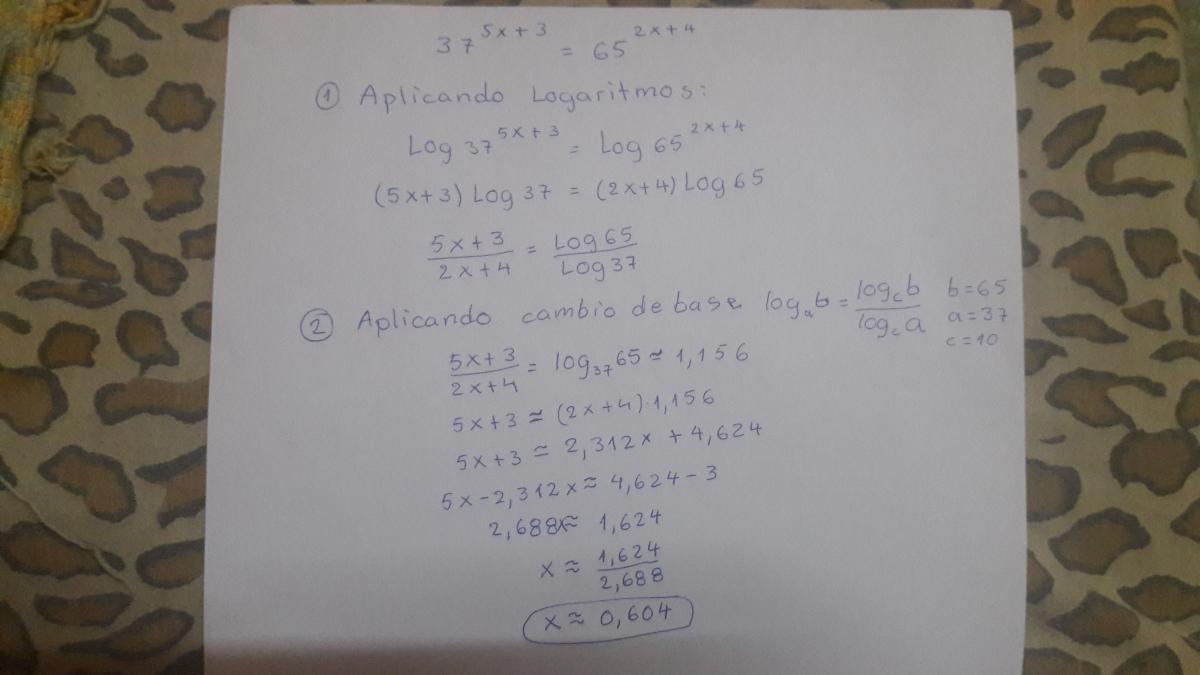 37^(5x+3) = 65^(2x+4)
① Aplicando Logaritmos:
Log 37^(5x+3) = Log 65^(2x+4)
(5x+3) Log 37 = (2x+4) Log 65
(5x+3)/(2x+4) = Log 65/Log 37
② Aplicando cambio de base log_a b = log_c b/log_c a b=65 a=37 c=10
(5x+3)/(2x+4) = log_37 65 ≃ 1,156
5x+3 ≃ (2x+4)·1,156
5x+3 ≃ 2,312x + 4,624
5x-2,312x ≈ 4,624-3
2,688x ≈ 1,624
x ≈ 1,624/2,688
x ≈ 0,604